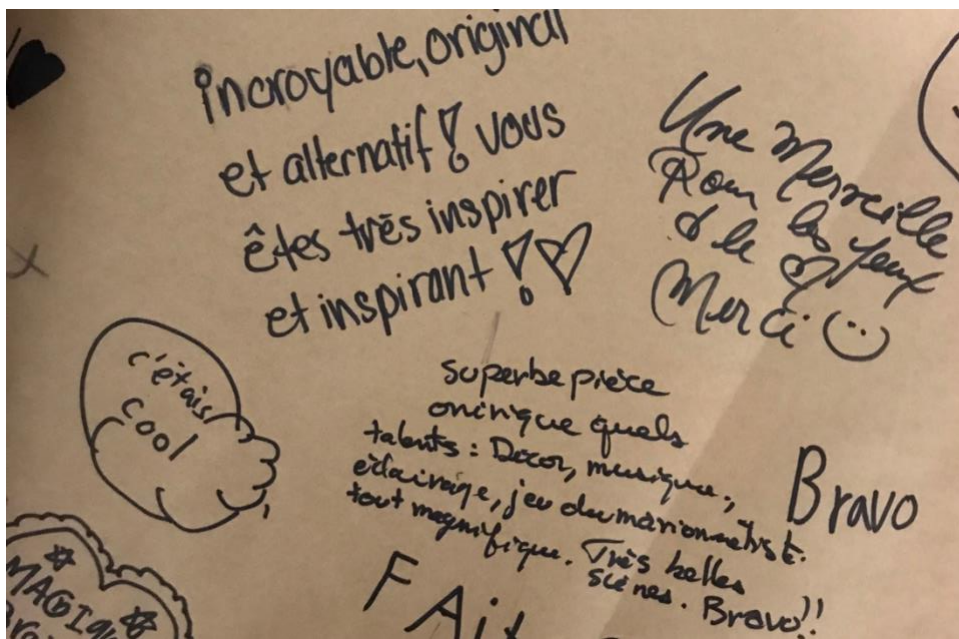 incroyable, original
et alternatif! vous
êtes très inspirer
et inspirant!
Une Merveille
Pour les yeux
& le
Merci
c'étais
cool
superbe pièce
onirique quels
talents : Décor, musique,
éclairage, jeu du marionnettiste.
tout magnifique. Très belles
scènes. Bravo!!
Bravo
MAGIQUE
FAit